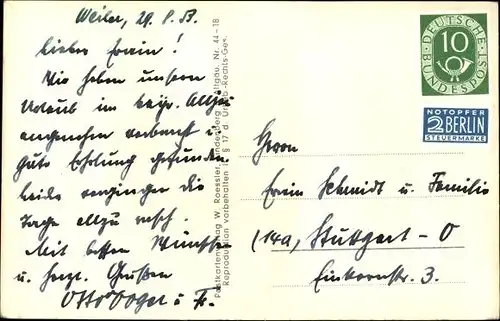 Weiler, 29.8.53.
Lieber Erwin!
Wir haben unseren
Urlaub im bayr. Allgäu
angenehm verbracht u.
gute Erholung gefunden.
Leider vergingen die
Tage allzu rasch.
Mit besten Wünschen
u. herzl. Grüßen
Otto Vogel u. Fr.
Postkartenverlag W. Roessler, Allgäu. Nr. 44-18
Reproduktion vorbehalten § 17 d Urheb.-Rechts-Ges.
DEUTSCHE BUNDESPOST
10
NOTOPFER
2 BERLIN
STEUERMARKE
Herrn
Erwin Schmidt u. Familie
(14a) Stuttgart-O
Einkornstr. 3.